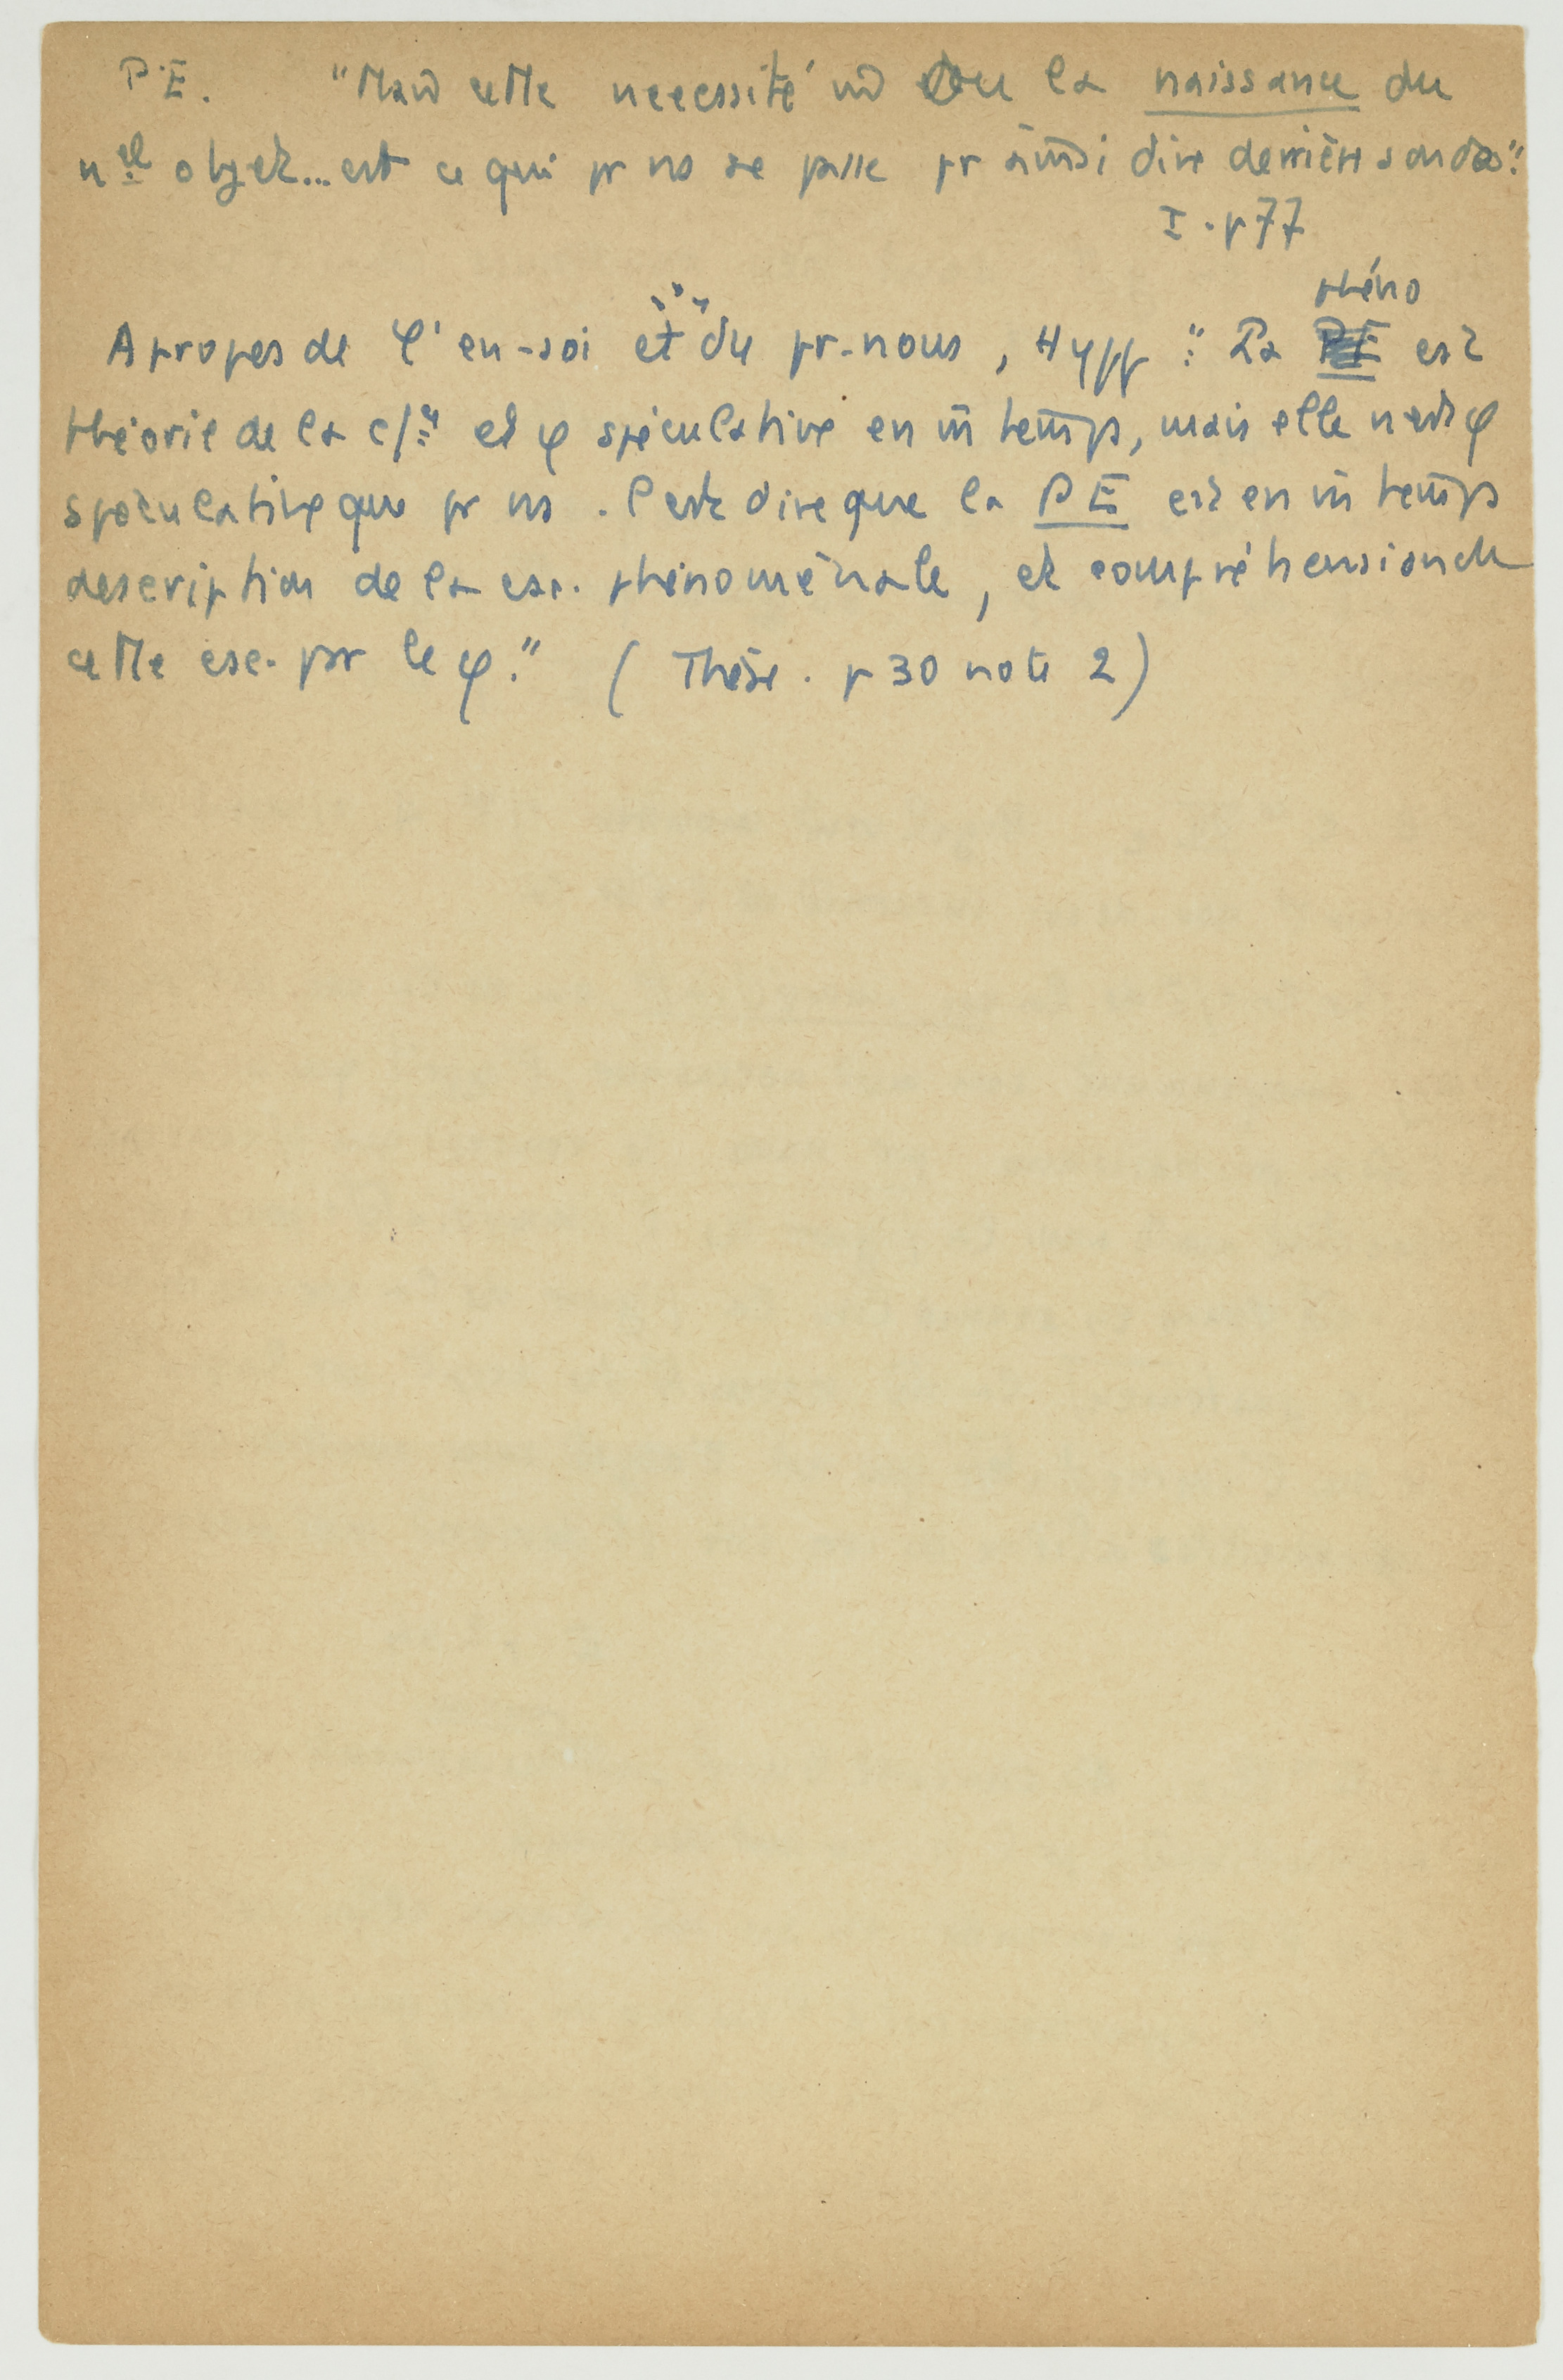 P.E. "Mais cette necessité m̂ ou la naissance du
nel objet... est ce qui pr ns se passe pr ainsi dire derrière son dos".
I. p 77
phéno
A propos de l'en-soi et du pr-nous, Hypp : "La est
théorie de la c/ce et φ spéculative en m̂ temps, mais elle n'est φ
spéculative que pr ns. C'est dire que la PE est en m̂ temps
description de la csc. phénoménale, et compréhension de
cette csc. par le φ." (Thèse. p 30 note 2)